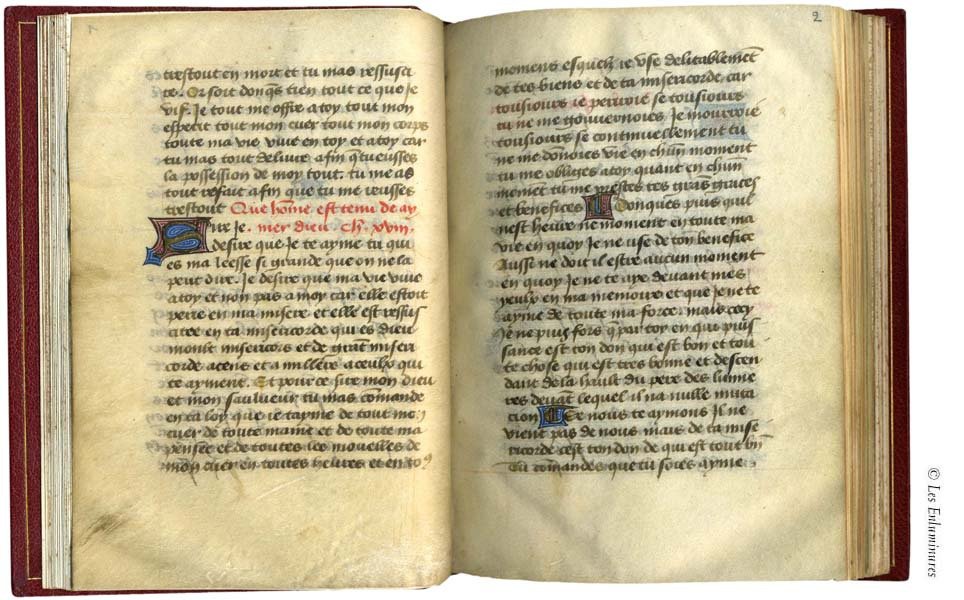 trestout en mort et tu mas ressusci
te. Or soit donq̃s tien tout ce que ie
vif. Je tout me offre a toy tout mon
esperit tout mon cuer tout mon corps
toute ma vie vive en toy et a toy car
tu mas tout delivre afin q̃ tu eusses
la possession de moy tout. tu me as
tout refait afin que tu me reusses
trestout Que hom̃e est tenu de ay
Sire Je. mer dieu. Ch. xviii.
desire que Je te ayme tu qui
es ma leesse si grande que on ne la
peut dire. Je desire que ma vie vive
a toy et non pas a moy car elle estoit
perie en ma misere et elle est ressus
citee en ta misericorde qui es dieu
moult misericors et de grãt miseri
corde a cens et a milliers a ceulx qui
te ayment. Et pour ce sire mon dieu
et mon saulueur tu mas com̃ande
en ta loy que ie tayme de tout mon
cuer de toute mame et de toute ma
pensee et de toutes les mouelles de
mon cuer en toutes heures et en to9
2
momens esquelz ie use delitablement
de tes biens et de ta misericorde. car
tousiours ie periroie se tousiours
tu ne me gouvernoies Je mourroie
tousiours se continuellement tu
ne me donoies vie en chũn moment
tu me obliges a toy quant en chũn
momet tu me prestes tes grãs graces
et benefices Donques puis quil
nest heure ne moment en toute ma
vie en quoy Je ne use de ton benefice
Aussi ne doit il estre aucun moment
en quoy Je ne te aye devant mes
yeulx en ma memoire et que Je ne te
ayme de toute ma force. mais cecy
Je ne puis fors q̃ par toy en qui puis
sance est ton don qui est bon et tou
te chose qui est tres bonne et descen
dant de la hault du pere des lumie
res devãt lequel il na nulle muta
cion Ce nous te aymons Il ne
vient pas de nous mais de ta mise
ricorde cest ton don de qui est tout bñ
Tu comandes que tu soies ayme
© Les Enluminures